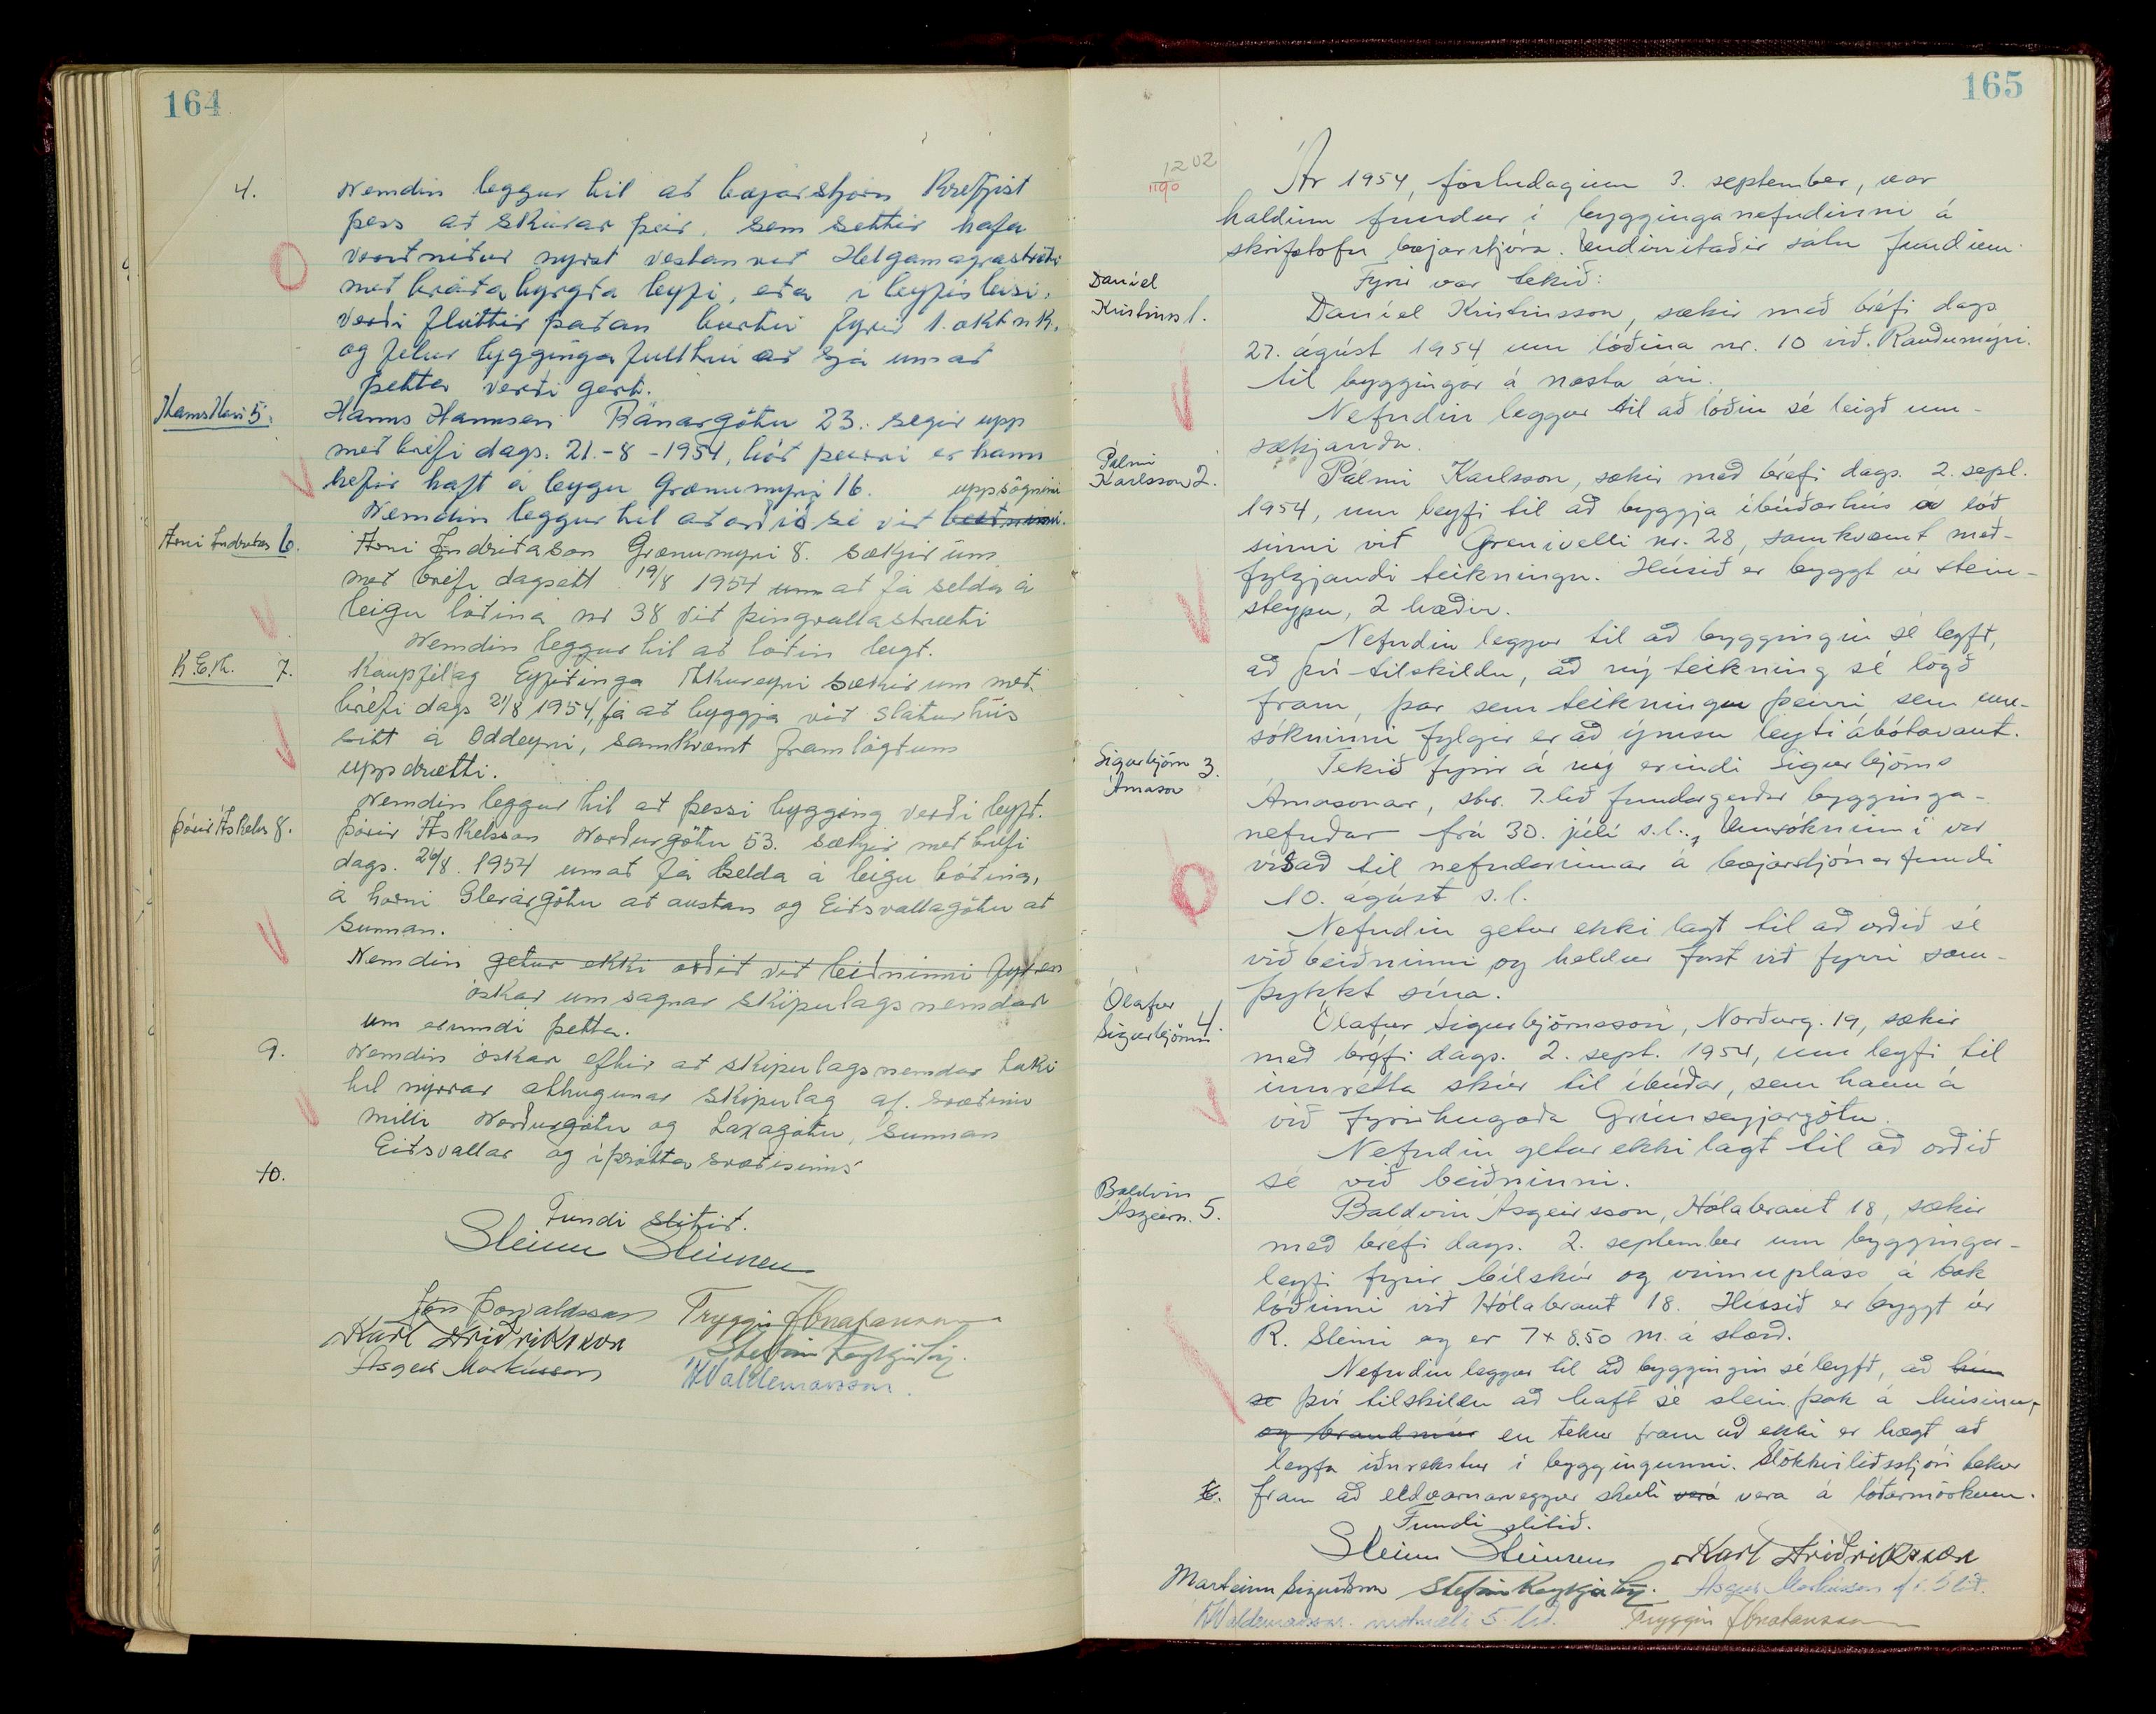 164
4.
Nemdin leggur til at bæjarstjórn Krefjist
þess at skúrar þeir, sem settir hafa
verit nitur nyrst vestan vit Helgamagrastræti
met bráðabyrgta leyfi, eta i leyfisleysi,
verði fluttir þatan burtu fyrir 1. okt n.k.
og felur byggingafulltrúa at sjá um at
þetta verði gert.
Hans Han 5.
Hanns Hannsen Ránargötu 23. segir upp
met bréfi dags. 21.-8-1954, lót þeirri er hann
hefir haft á leygu Grænumyri 16.
uppsögnini
Nemdin leggur til at orðið sé vit beitninni.
Árni Indriðas 6.
Árni Indriðason Grænumyri 8. sækjir um
met bréfi dagsett 19/8 1954 um at fá selda á
leigu lótina nr 38 vit þingvallastræti
Nemdin leggur til at lótin leigt.
K.E.A. 7.
Kaupfélag Eyfirtinga Akureyri sækir um met.
bréfi dags 21/8 1954, fá at byggja vit slaturhús
sitt á Oddeyri, samkvæmt framlögtum
uppdrætti.
Nemdin leggur til at þessi bygging verði leyft.
þórir Áskels 8.
þórir Áskelsson Norðurgötu 53. sækjir met bréfi
dags. 26/8. 1954 um at fá selda á leigu lótina,
á horni Glerárgötu at austan og Eitsvallagötu at
sunnan.
Nemdin getur ekki orðit vit beitninni fyr en
óskar umsagnar skipulagsnemdar
um erindi þetta.
9.
Nemdin óskar eftir at skipulagsnemdar taki
til nýrrar athugunar skipulag af. svætinu
milli Norðurgötu og Laxagötu, sunnan
Eitsvallar og íþróttasvætisins
10.
Fundi slitit.
Steinn Steinsen
Jón Þorvaldsson Tryggvi Jónatansson
Karl Friðriksson Stefán Reykjalín
Ásgeir Markússon Valdemarsson.
165
1202
1190
Ár 1954, föstudaginn 3. september, var
haldinn fundur í bygginganefndinni á
skrifstofu bæjarstjóra. Undirritaðir sátu fundinn.
Fyrir var tekið:
Daníel
Kristinss 1.
Daníel Kristinsson, sækir með bréfi dags.
27. ágúst 1954 um lóðina nr. 10 við Rauðumýri.
til byggingar á næsta ári.
Nefndin leggur til að lóðin sé leigð um-
sækjanda.
Pálmi
Karlsson 2.
Pálmi Karlsson, sækir með bréfi dags. 2. sept.
1954, um leyfi til að byggja íbúðarhús á lóð
sinni við Grenivelli nr. 28, samkvæmt með-
fylgjandi teikningu. Húsið er byggt úr stein-
steypu, 2 hæðir.
Nefndin leggur til að byggingin sé leyfð,
að því tilskildu, að ný teikning sé lögð
fram, þar sem teikningu þeirri sem um-
sókninni fylgir er að ýmsu leyti ábótavant.
Sigurbjörn 3.
Árnason
Tekið fyrir á ný erindi Sigurbjörns
Árnasonar, sbr. 7. lið fundargerðar bygginga-
nefndar frá 30. júlí s.l., Umsókninni var
vísað til nefndarinnar á bæjarstjórnarfundi
10. ágúst s.l.
Nefndin getur ekki lagt til að orðið sé
við beiðninni og heldur fast við fyrri sam-
þykkt sína.
Ólafur
Sigurbjörns 4.
Ólafur Sigurbjörnsson, Norðurg. 19, sækir
með bréfi dags. 2. sept. 1954, um leyfi til
innrétta skúr til íbúðar, sem hann á
við fyrirhugaða Grímseyjargötu.
Nefndin getur ekki lagt til að orðið
sé við beiðninni.
Baldvin
Ásgeirs. 5.
Baldvin Ásgeirsson, Hólabraut 18, sækir
með bréfi dags. 2. september um bygginga-
leyfi fyrir bílskúr og vinnupláss á bak
lóðinni við Hólabraut 18. Húsið er byggt úr
R. Steini og er 7 x 8.50 m. á stærð.
Nefndin leggur til að byggingin sé leyfð, að hún
sé því tilskildu að haft sé steinþak á húsinu,
og brandmúr en tekur fram að ekki er hægt að
leyfa iðnrekstur í byggingunni. Slökkviliðsstjóri tekur
6. fram að eldvarnarveggur skuli verá vera á lóðarmörkum.
Fundi slitið.
Steinn Steinsen Karl Friðriksson
Marteinn Sigurðsson Stefán Reykjalín. Ásgeir Markússon
Valdemarsson. mótmælir 5. lið. Tryggvi Jónatansson